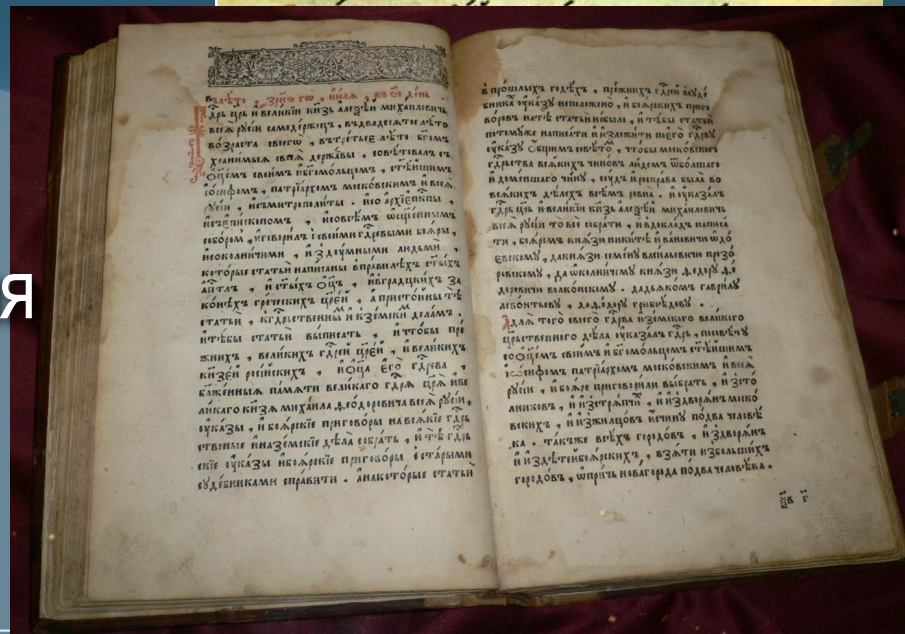 в лѣто ҂зрнѕ го , июля , въ ѕі день
Гдрь црь и великіи кнзь алеѯѣи михаиловичь
всеѧ русіи самодержецъ , въдвадесятое лѣто
возраста своегѡ , въ третьее лѣто бгомъ
хранимыѧ своеѧ державы , совѣтовалъ съ
ѻцемъ своимъ ибгомольцомъ , ст҃ѣйшимъ
іѡсифомъ , патрїархомъ московскимъ и всеѧ
русіи , исмитрополиты . исо архїепкпы ,
исъепископомъ , исовсѣмъ ѡсщ҃еннымъ
соборомъ , иговорилъ своими гдревыми боѧры ,
исоколничими , издоумными людьми ,
которые статьи написаны вправилѣхъ ст҃ыхъ
апт҃лъ , ист҃ыхъ ѻц҃ъ , ивградцкихъ за
конѣхъ греческихъ цр҃ей , апристойны тѣ
статьи , кгдрьственнымъ икземскимъ деламъ .
итѣбы статьи выписать , ичтобы пре
жнихъ , великихъ гдреи цр҃ей , ивеликихъ
кнзей російскихъ , иѻца его гдрева ,
блаженныѧ памѧти великаго гдрѧ цр҃ѧ иве
ликаго кнзѧ михаила ѳеодоровича всеѧ русіи ,
ѹказы , ибоѧрскіе приговоры навсѧкіе гдрь
ственые иназемскіе дѣла собрать , итѣ гдрь
скіе ѹказы ибоѧрскіе приговоры состарыми
судебниками справити . анакоторые статьи
в прошлыхъ годѣхъ , прежнихъ гдреи всуде
бникахъ ѹказу неположено , ибоѧрскихъ приго
воровъ натѣ статьи небыло , итѣбы статьи
потомуже написати иизложити поего гдреву
ѹказу ѻбщимъ совѣтомъ , чтобы московского
гдрьства всѧкихъ чиновъ людемъ ѿболшаго
идоменшаго чину , судъ ирасправа была во
всѧкихъ дѣлехъ всѣмъ ровна . иѹказалъ
гдрь црь ивеликіи кнзь алеѯѣи михаиловичь
всеѧ русіи товсе собрати , ивдокладъ написа
ти , боѧромъ кнѧзю никитѣ ивановичю ѡдо
евскому , дакнѧзю семену васильевичю прозо
ровскому , даѡколничему кнѧзю ѳедору ѳе
доровичю волконскому . дадьѧкомъ гаврилу
левонтьеву , даѳедору грибоѣдову .
Адлѧ того своего гдрева иземского великого
црьственного дѣла ѹказалъ гдрь , посовѣту
соѻцемъ своимъ ибгомольцемъ ст҃ѣйшимъ
іѡсифомъ патрїархомъ московскимъ ивсеѧ
русіи , ибоѧре приговорили выбрать , изсто
лниковъ , иизстрѧпчихъ , ииздворѧнъ моско
вскихъ , иизжилцовъ ищину подва человѣ
ка . такъже всѣхъ городовъ , издворѧнъ
ииздѣтейбоѧрскихъ , взѧти изболшихъ
городовъ , ѡпричь новагорода подвачеловѣка .
Я